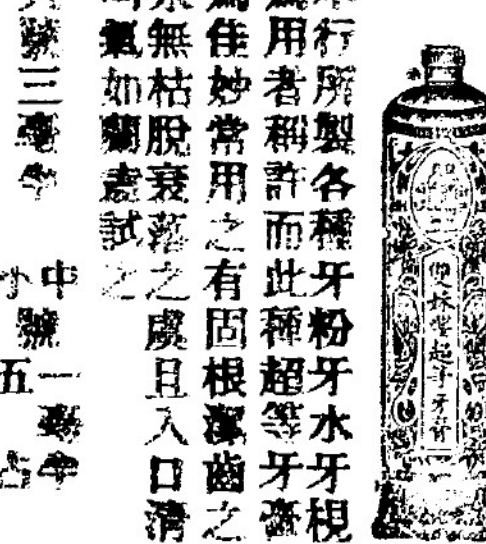 妹
牙膏
行所製各種牙粉牙水牙梘
用者稱許而此種超等牙膏
佳妙常用之有固根潔齒之
無枯脫衰落之虞且入口清
氣如蘭試之
號三毫半
中號一毫半
小五占